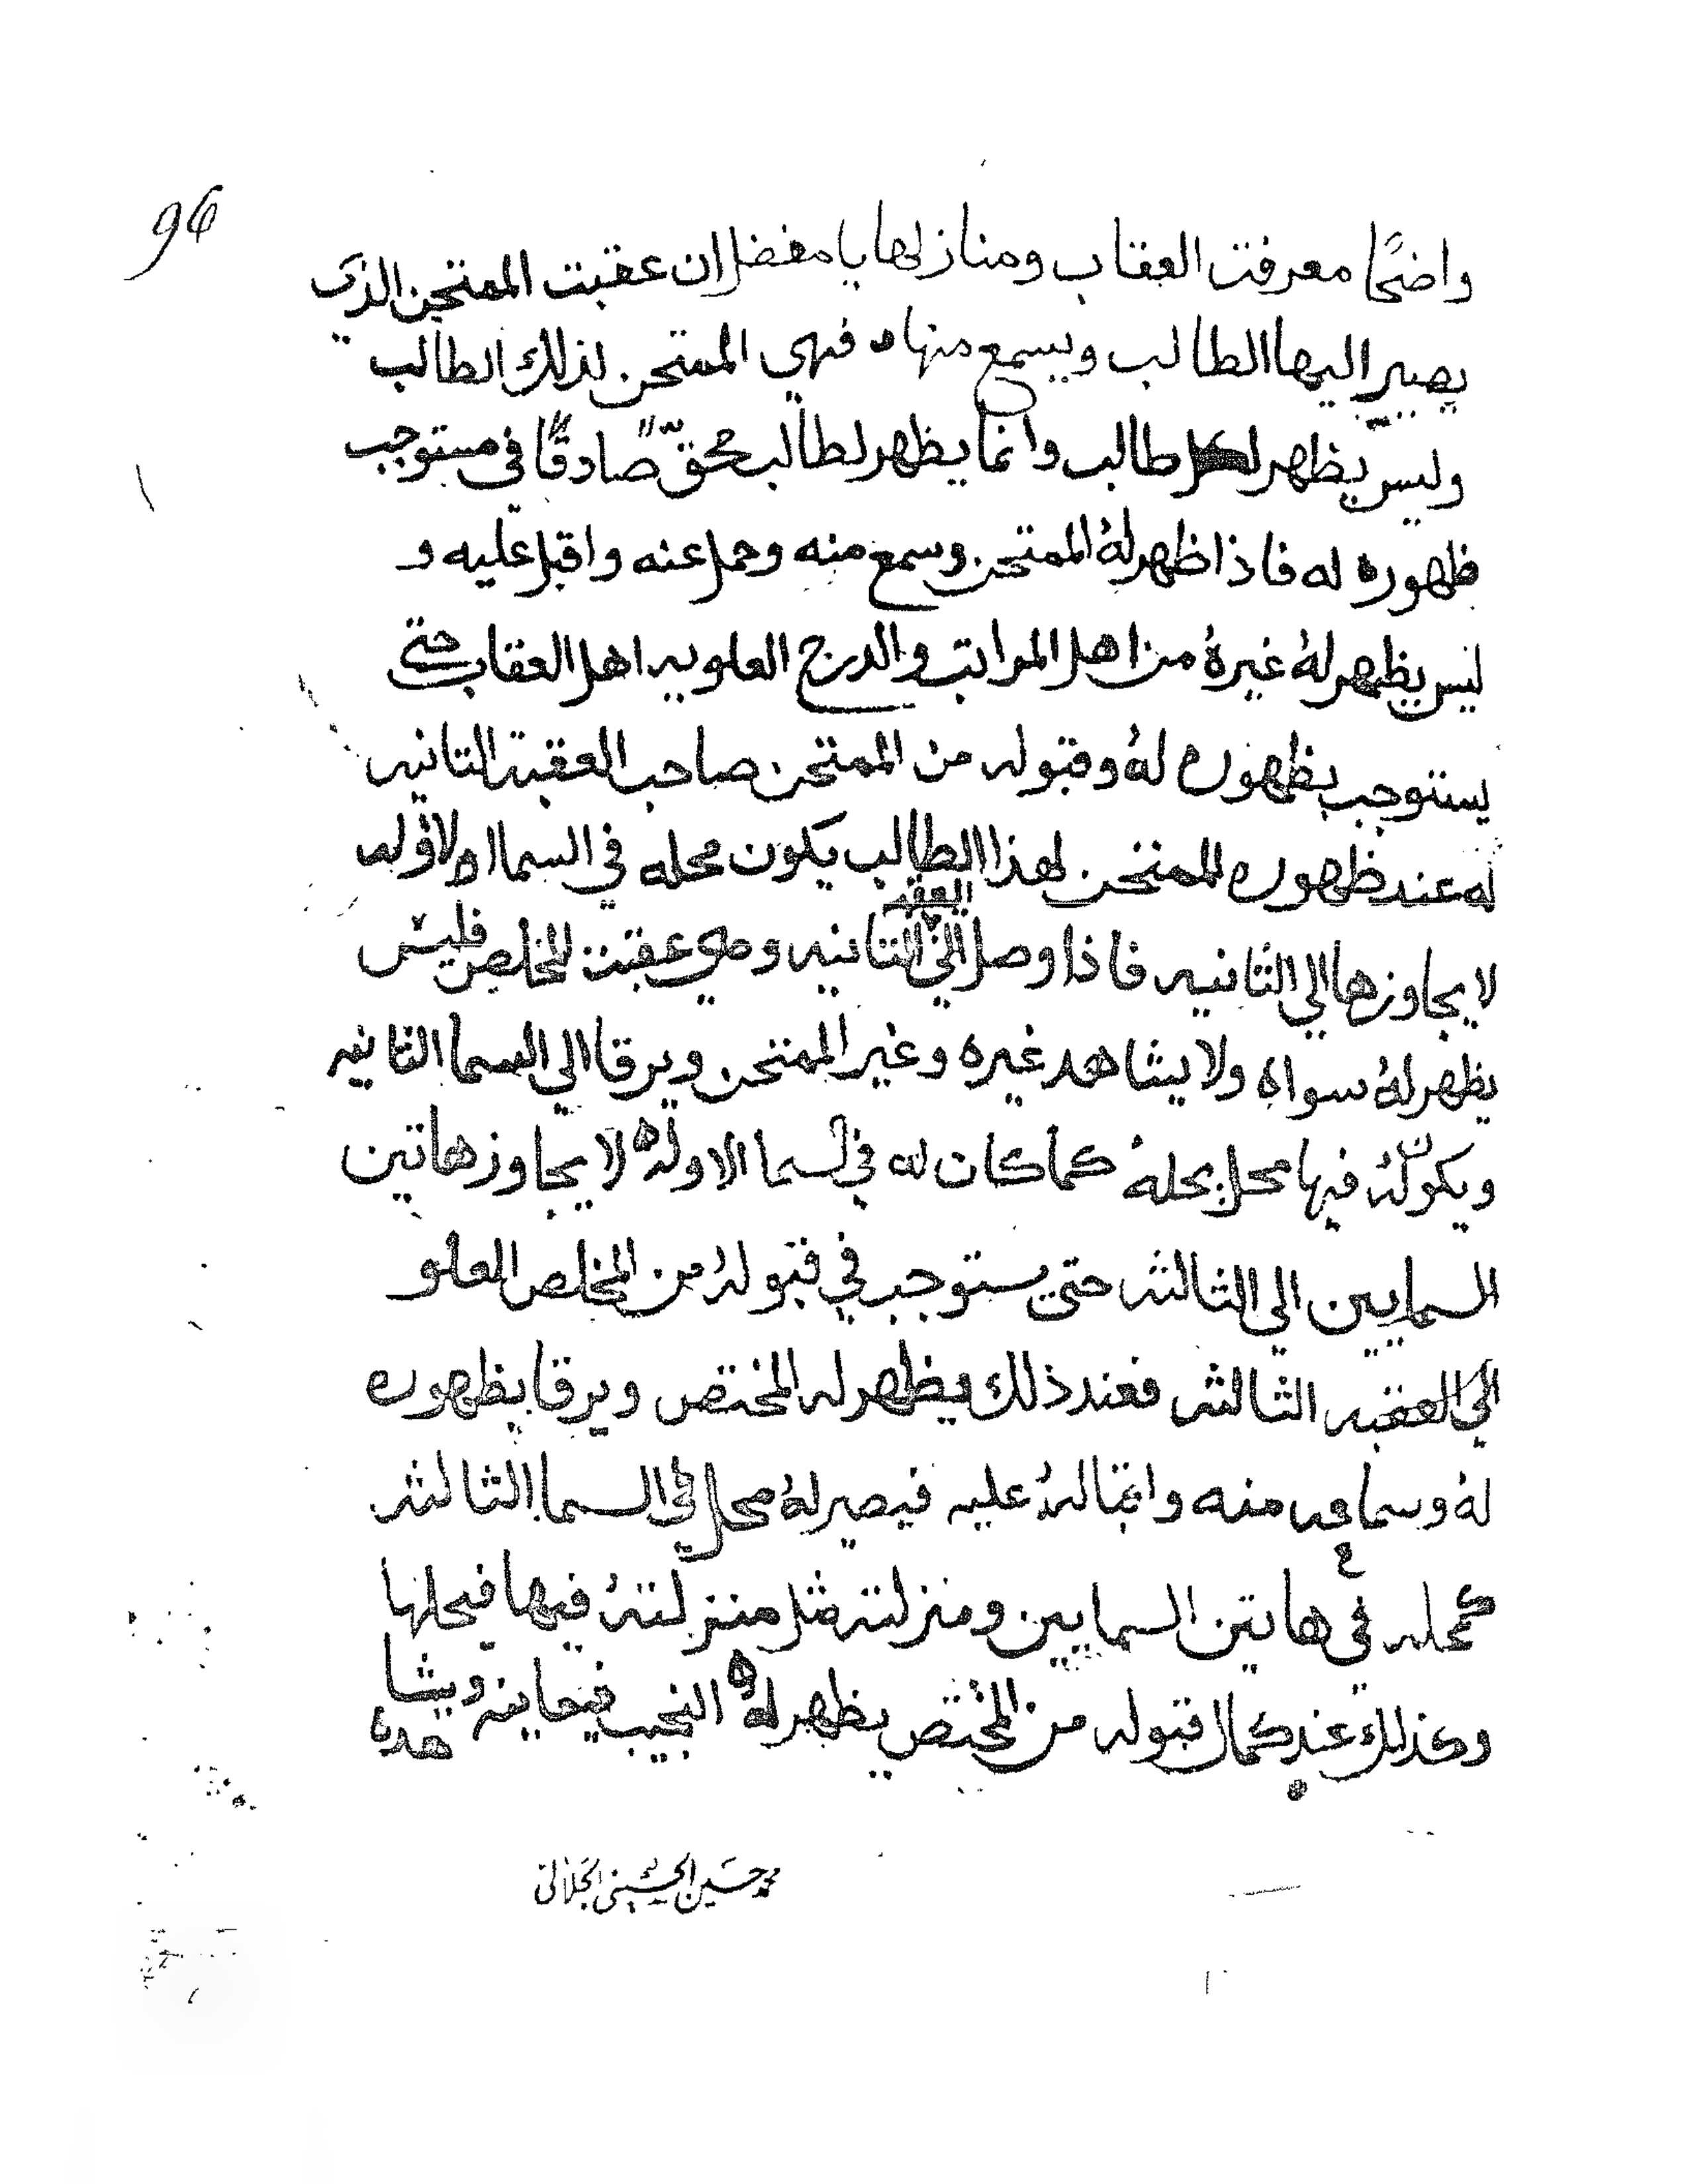 96
واضحًا معرفت العقاب ومنازلها يا مفضل ان عقبت الممتحن الذي
يصير اليها الطالب ويسمع منها فهي الممتحن لذلك الطالب
وليس يظهر لكل طالب وانما يظهر لطالب محقّ صادقًا في مستوجب
ظهوره له فاذا ظهر لهُ الممتحن وسمع منه وحمل عنه واقبل عليه و
ليس يظهر لهُ غيرهُ من اهل المراتب والدرج العلويه اهل العقاب حتى
يستوجب بظهوره لهُ وقبوله من الممتحن صاحب العقبة الثانيه
له عند ظهوره للممتحن لهذا الطالب يكون محله في السما الاوله
لا يجاوزها الي الثانيه فاذا وصل الي العقبه الثانيه وهي عقبت المخلص فليس
يظهر لهُ سواه ولا يشاهد غيره وغير الممتحن ويرقا الي السما الثانيه
ويكون لهُ فيها محل يحلهُ كما كان له في السما الاوله لا يجاوز هاتين
السمايين الي الثالثه حتى يستوجب في قبولهُ من المخلص العلو
الي العقبه الثالثه فعند ذلك يظهر له المختص ويرقا بظهوره
لهُ وسماعه منه واقبالهُ عليه فيصير لهُ محل في السما الثالثه
كمحله في هاتين السمايين ومنزلته مثل منزلتهُ فيها فيحلها
وكذلك عند كمال قبوله من المختص يظهر لهُ النجيب فيعاينه ويشا
هده
محمد حسين الحسيني الجلالي